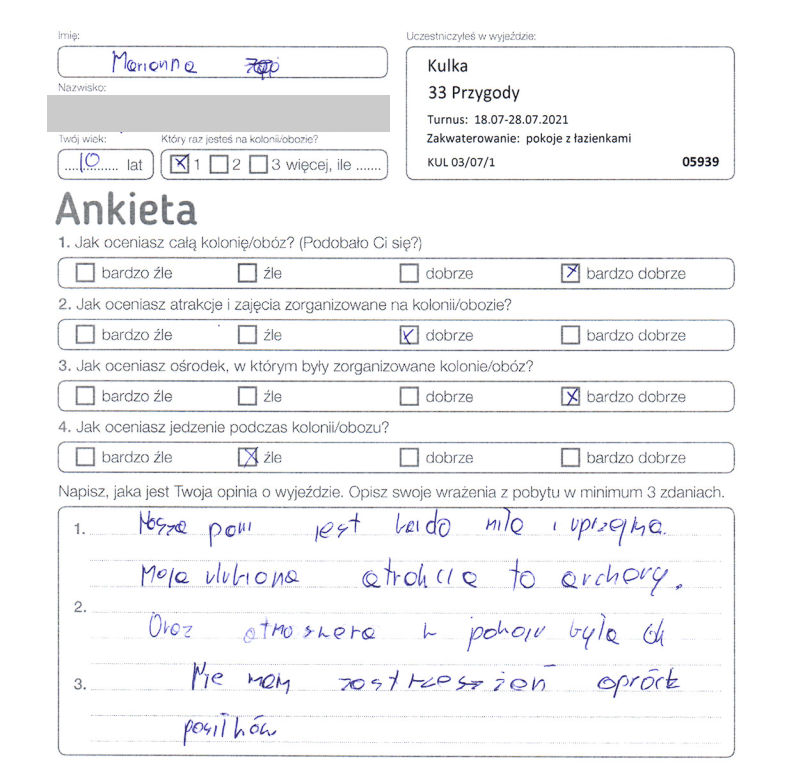 Imię:
Marianna
Uczestniczyłeś w wyjeździe:
Kulka
33 Przygody
Turnus: 18.07-28.07.2021
Zakwaterowanie: pokoje z łazienkami
KUL 03/07/1 05939
Nazwisko:
Twój wiek:
10 lat
Który raz jesteś na kolonii/obozie?
1 2 3 więcej, ile .......
Ankieta
1. Jak oceniasz całą kolonię/obóz? (Podobało Ci się?)
bardzo źle źle dobrze bardzo dobrze
2. Jak oceniasz atrakcje i zajęcia zorganizowane na kolonii/obozie?
bardzo źle źle dobrze bardzo dobrze
3. Jak oceniasz ośrodek, w którym były zorganizowane kolonie/obóz?
bardzo źle źle dobrze bardzo dobrze
4. Jak oceniasz jedzenie podczas kolonii/obozu?
bardzo źle źle dobrze bardzo dobrze
Napisz, jaka jest Twoja opinia o wyjeździe. Opisz swoje wrażenia z pobytu w minimum 3 zdaniach.
1. Nasza pani jest miła i uprzejma.
Moja ulubiona atrakcja to archery.
2.
Oraz w pokoju była ok
3. Nie mam zastrzeszżeń oprócz
posiłków